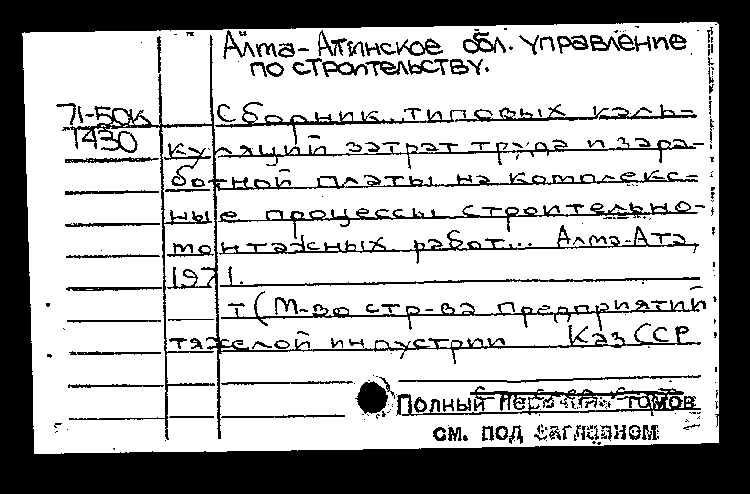 Алма-Атинское обл. управление
по строительству.
71-50к
1430
Сборник типовых каль-
куляций затрат труда и зара-
ботной платы на комплекс-
ные процессы строительно-
монтажных работ... Алма-Ата,
1971.
т (М-во стр-ва предприятий
тяжелой индустрии КазССР
Полный перечень томов
см. под заглавием